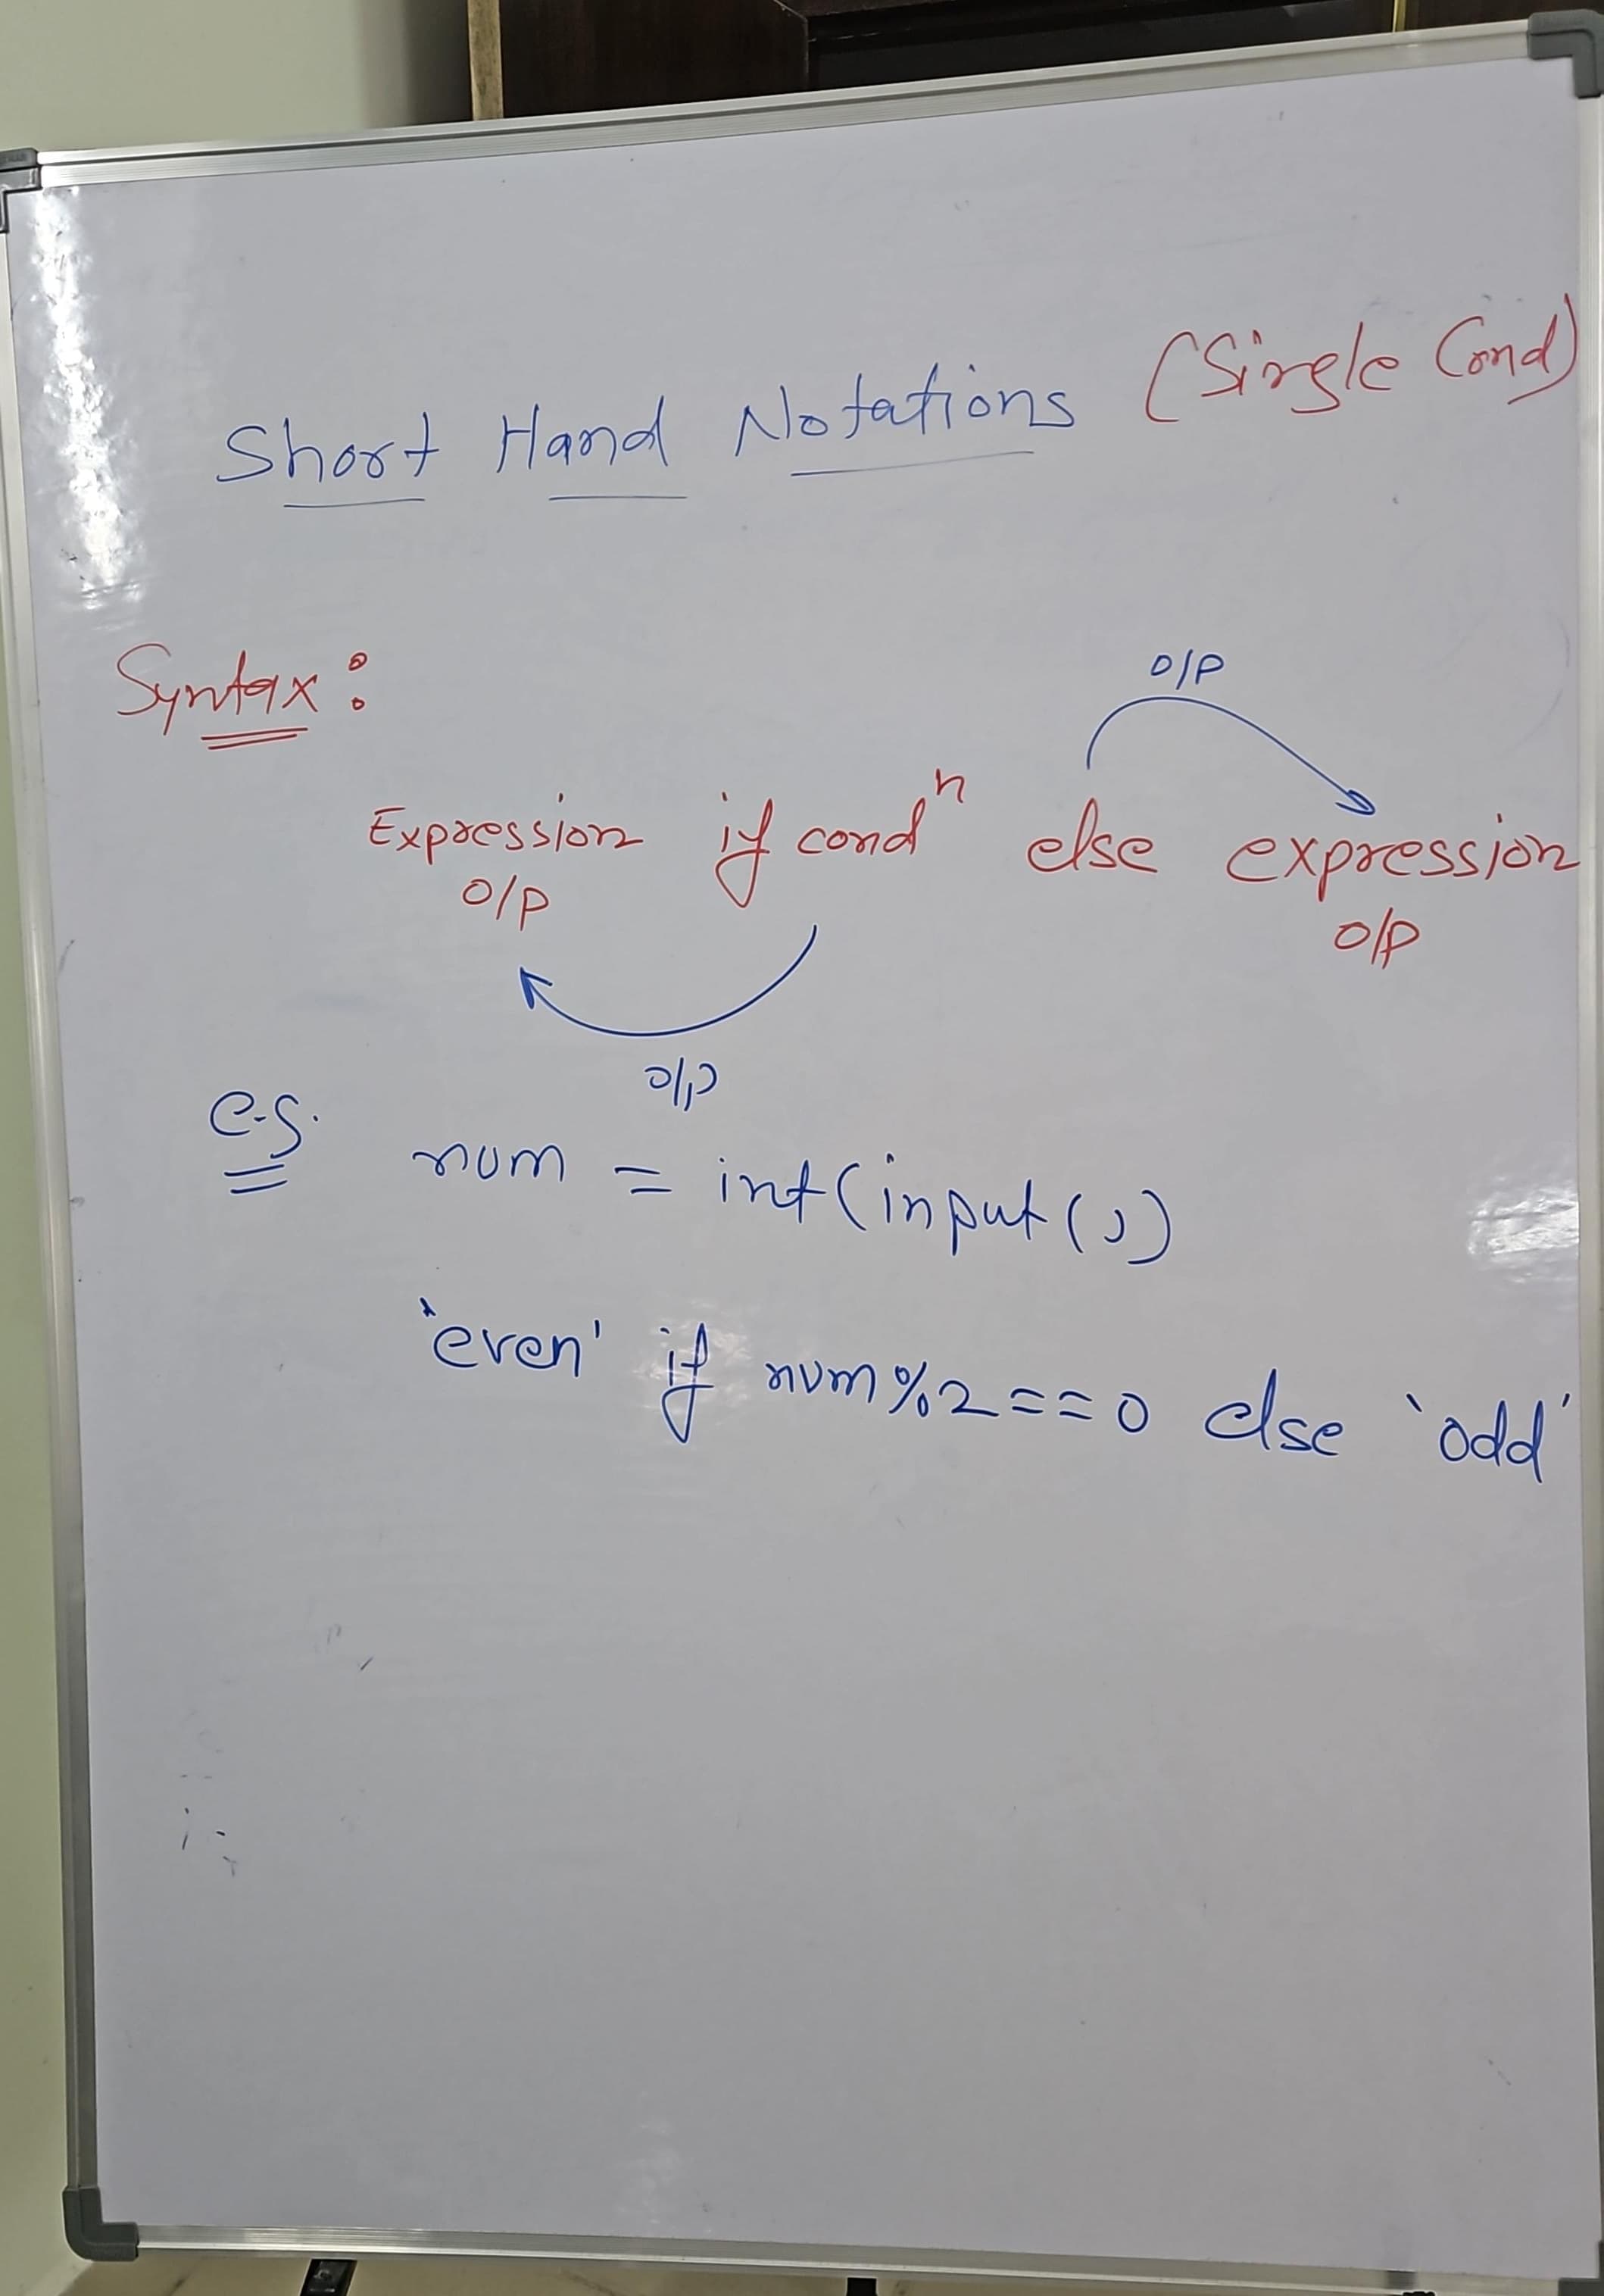 Short Hand Notations (Single Cond)
Syntax:
O/P
Expression if condⁿ else expression
O/P O/P
O/P
e.g. num = int(input())
'even' if num%2==0 else 'odd'